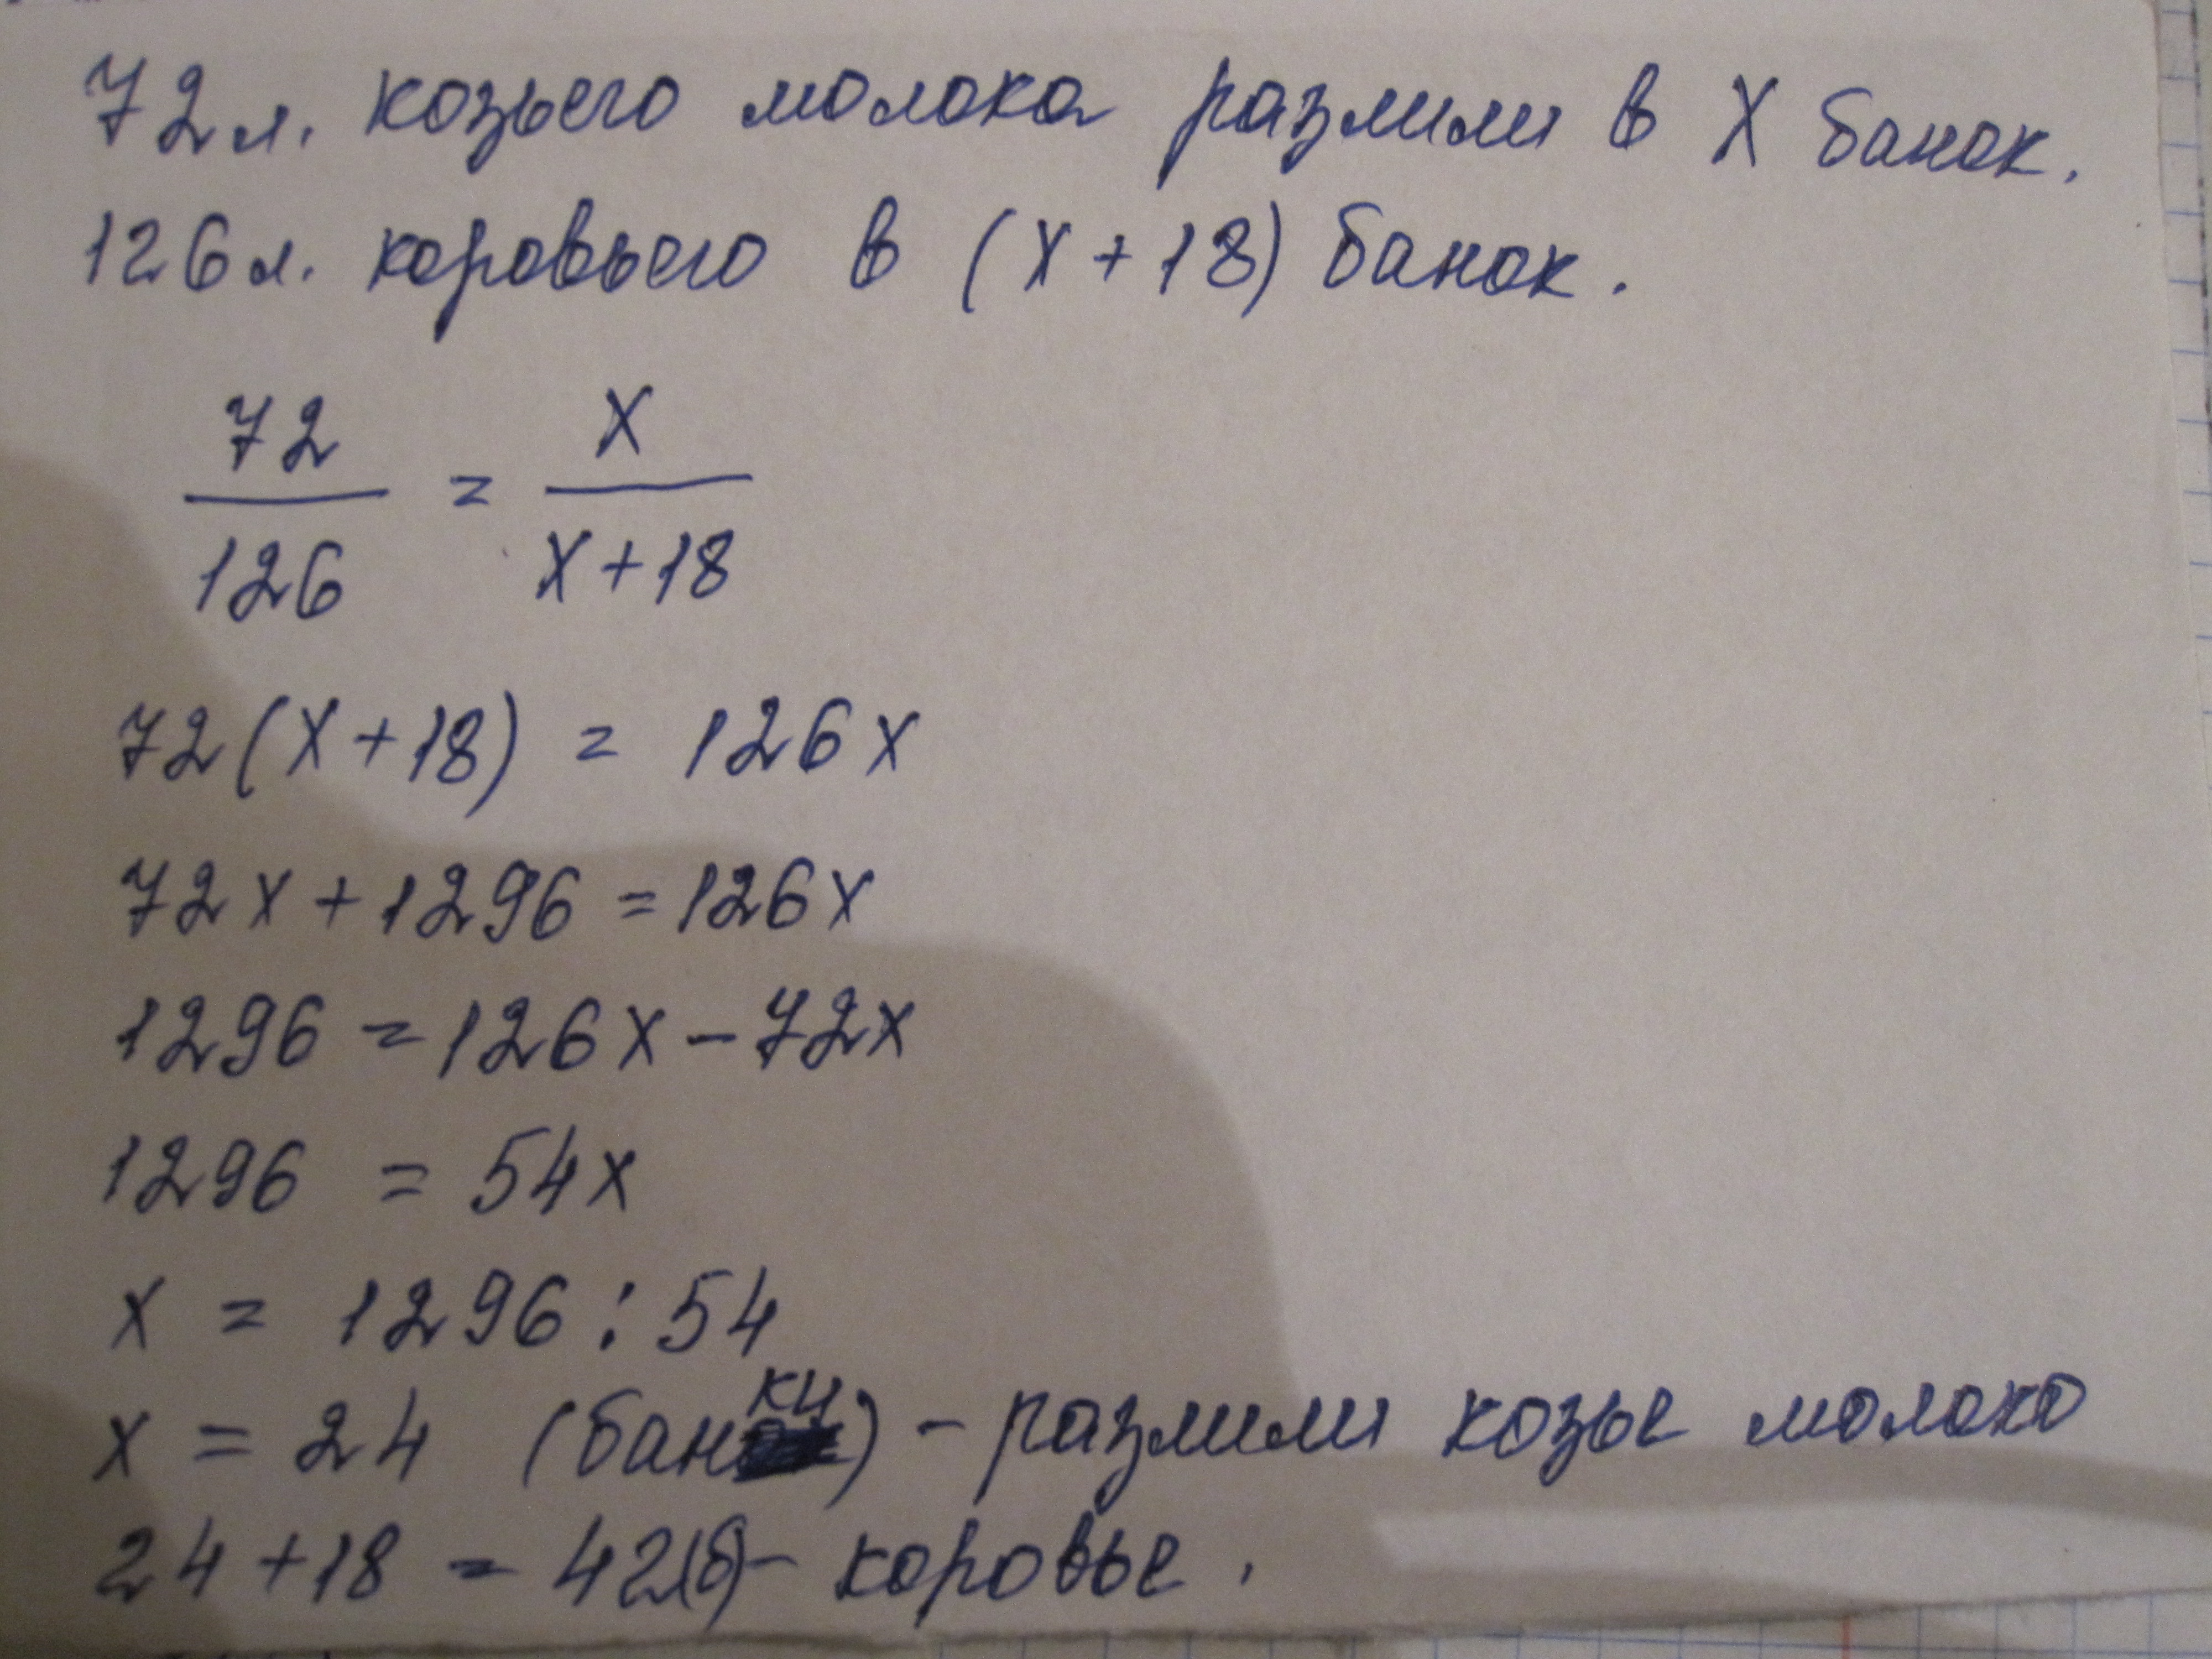 72 л. козьего молока разлили в X банок.
126 л. коровьего в (X + 18) банок.
72 / 126 = X / X + 18
72(X + 18) = 126 x
72 x + 1296 = 126 x
1296 = 126 x - 72 x
1296 = 54 x
x = 1296 : 54
x = 24 (банки) - разлили козье молоко
24 + 18 = 42(б) - коровье.